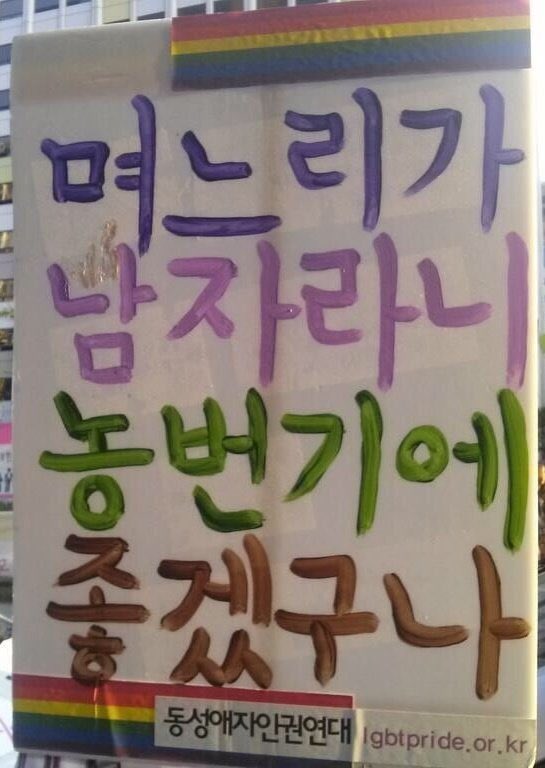 며느리가
남자라니
농번기에
좋겠구나
동성애자인권연대 lgbtpride.or.kr